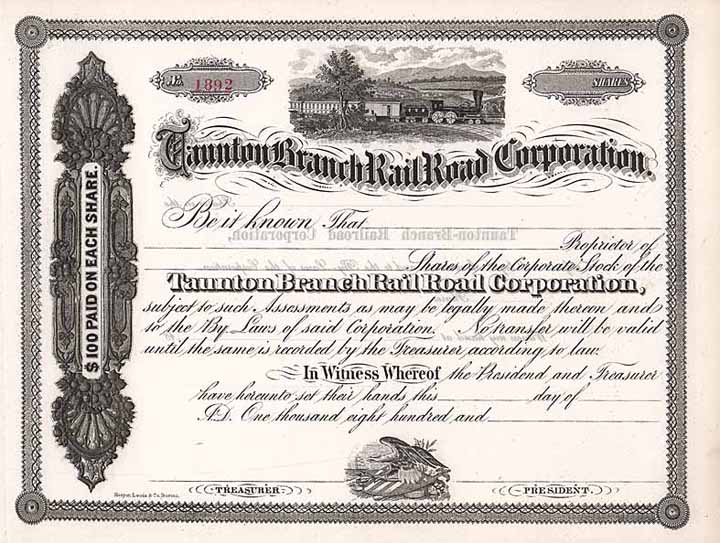 No. 1392
SHARES
Taunton Branch Rail Road Corporation.
Be it known That
Proprietor of
Shares of the Corporate Stock of the
Taunton Branch Rail Road Corporation,
subject to such Assessments as may be legally made thereon and
to the By Laws of said Corporation. No transfer will be valid
until the same is recorded by the Treasurer according to law.
In Witness Whereof the President and Treasurer
have hereunto set their hands this day of
A.D. One thousand eight hundred and
TREASURER.
PRESIDENT.
$100 PAID ON EACH SHARE.
Taunton-Branch Railroad Corporation,